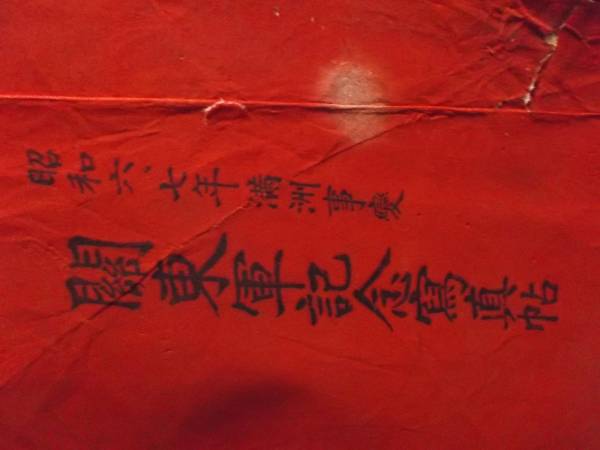 昭和六、七年満洲事變
關東軍記念寫真帖